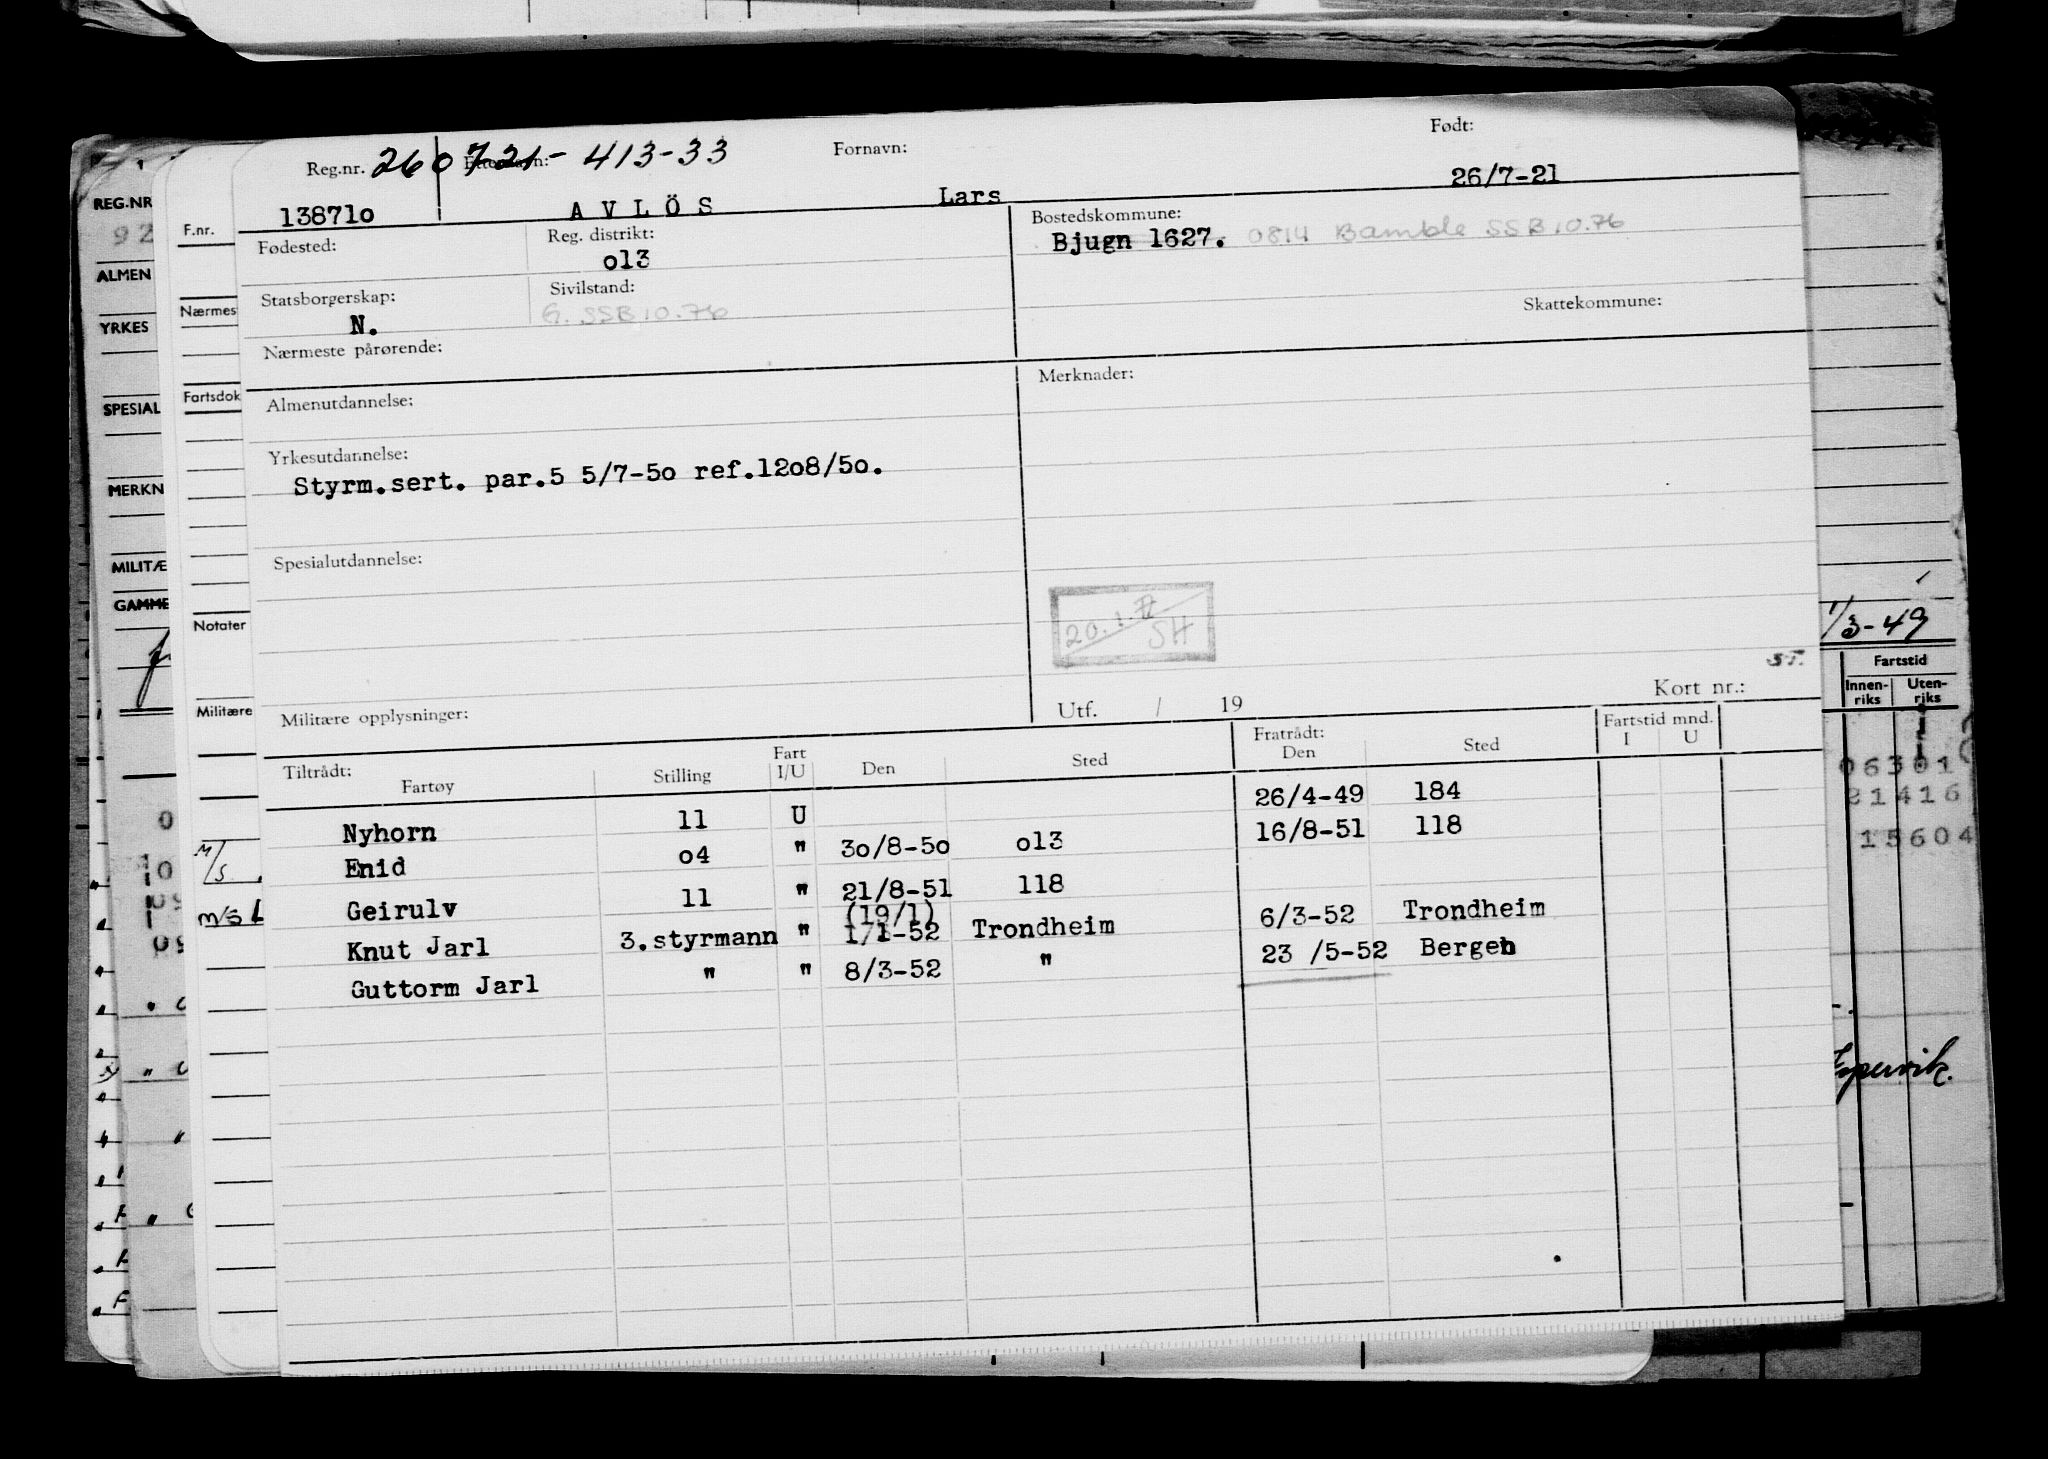 Reg.nr. 260721-413-33 Fornavn: Født:
138710 AVLÖS Lars 26/7-21
Fødested: Reg. distrikt: Bostedskommune:
o13 Bjugn 1627. 0814 Bamble SSB 10.76
Statsborgerskap: Sivilstand: Skattekommune:
N. G. SSB 10.76
Nærmeste pårørende: Merknader:
Almenutdannelse:
Yrkesutdannelse:
Styrm.sert. par.5 5/7-5o ref.12o8/5o.
Spesialutdannelse:
20.1.
SH
ST.
Militære opplysninger: Utf. / 19 Kort nr.:
Tiltrådt: Fartøy Stilling Fart I/U Den Sted Fratrådt: Den Sted Fartstid mnd. I U
Nyhorn 11 U 26/4-49 184
Enid o4 " 3o/8-5o o13 16/8-51 118
Geirulv 11 " 21/8-51 118
(19/1)
Knut Jarl 3.styrmann " 1/1-52 Trondheim 6/3-52 Trondheim
Guttorm Jarl " " 8/3-52 " 23 /5-52 Bergen
REG.NR
92
ALMEN
YRKES
SPESIAL
MERKN
MILITÆ
GAMME
F.nr.
Nærmes
Fartsdok
Notater
Militære
M/S
M/S L
1/3-49
Fartstid
Innen-riks Uten-riks
06301
21416
15604